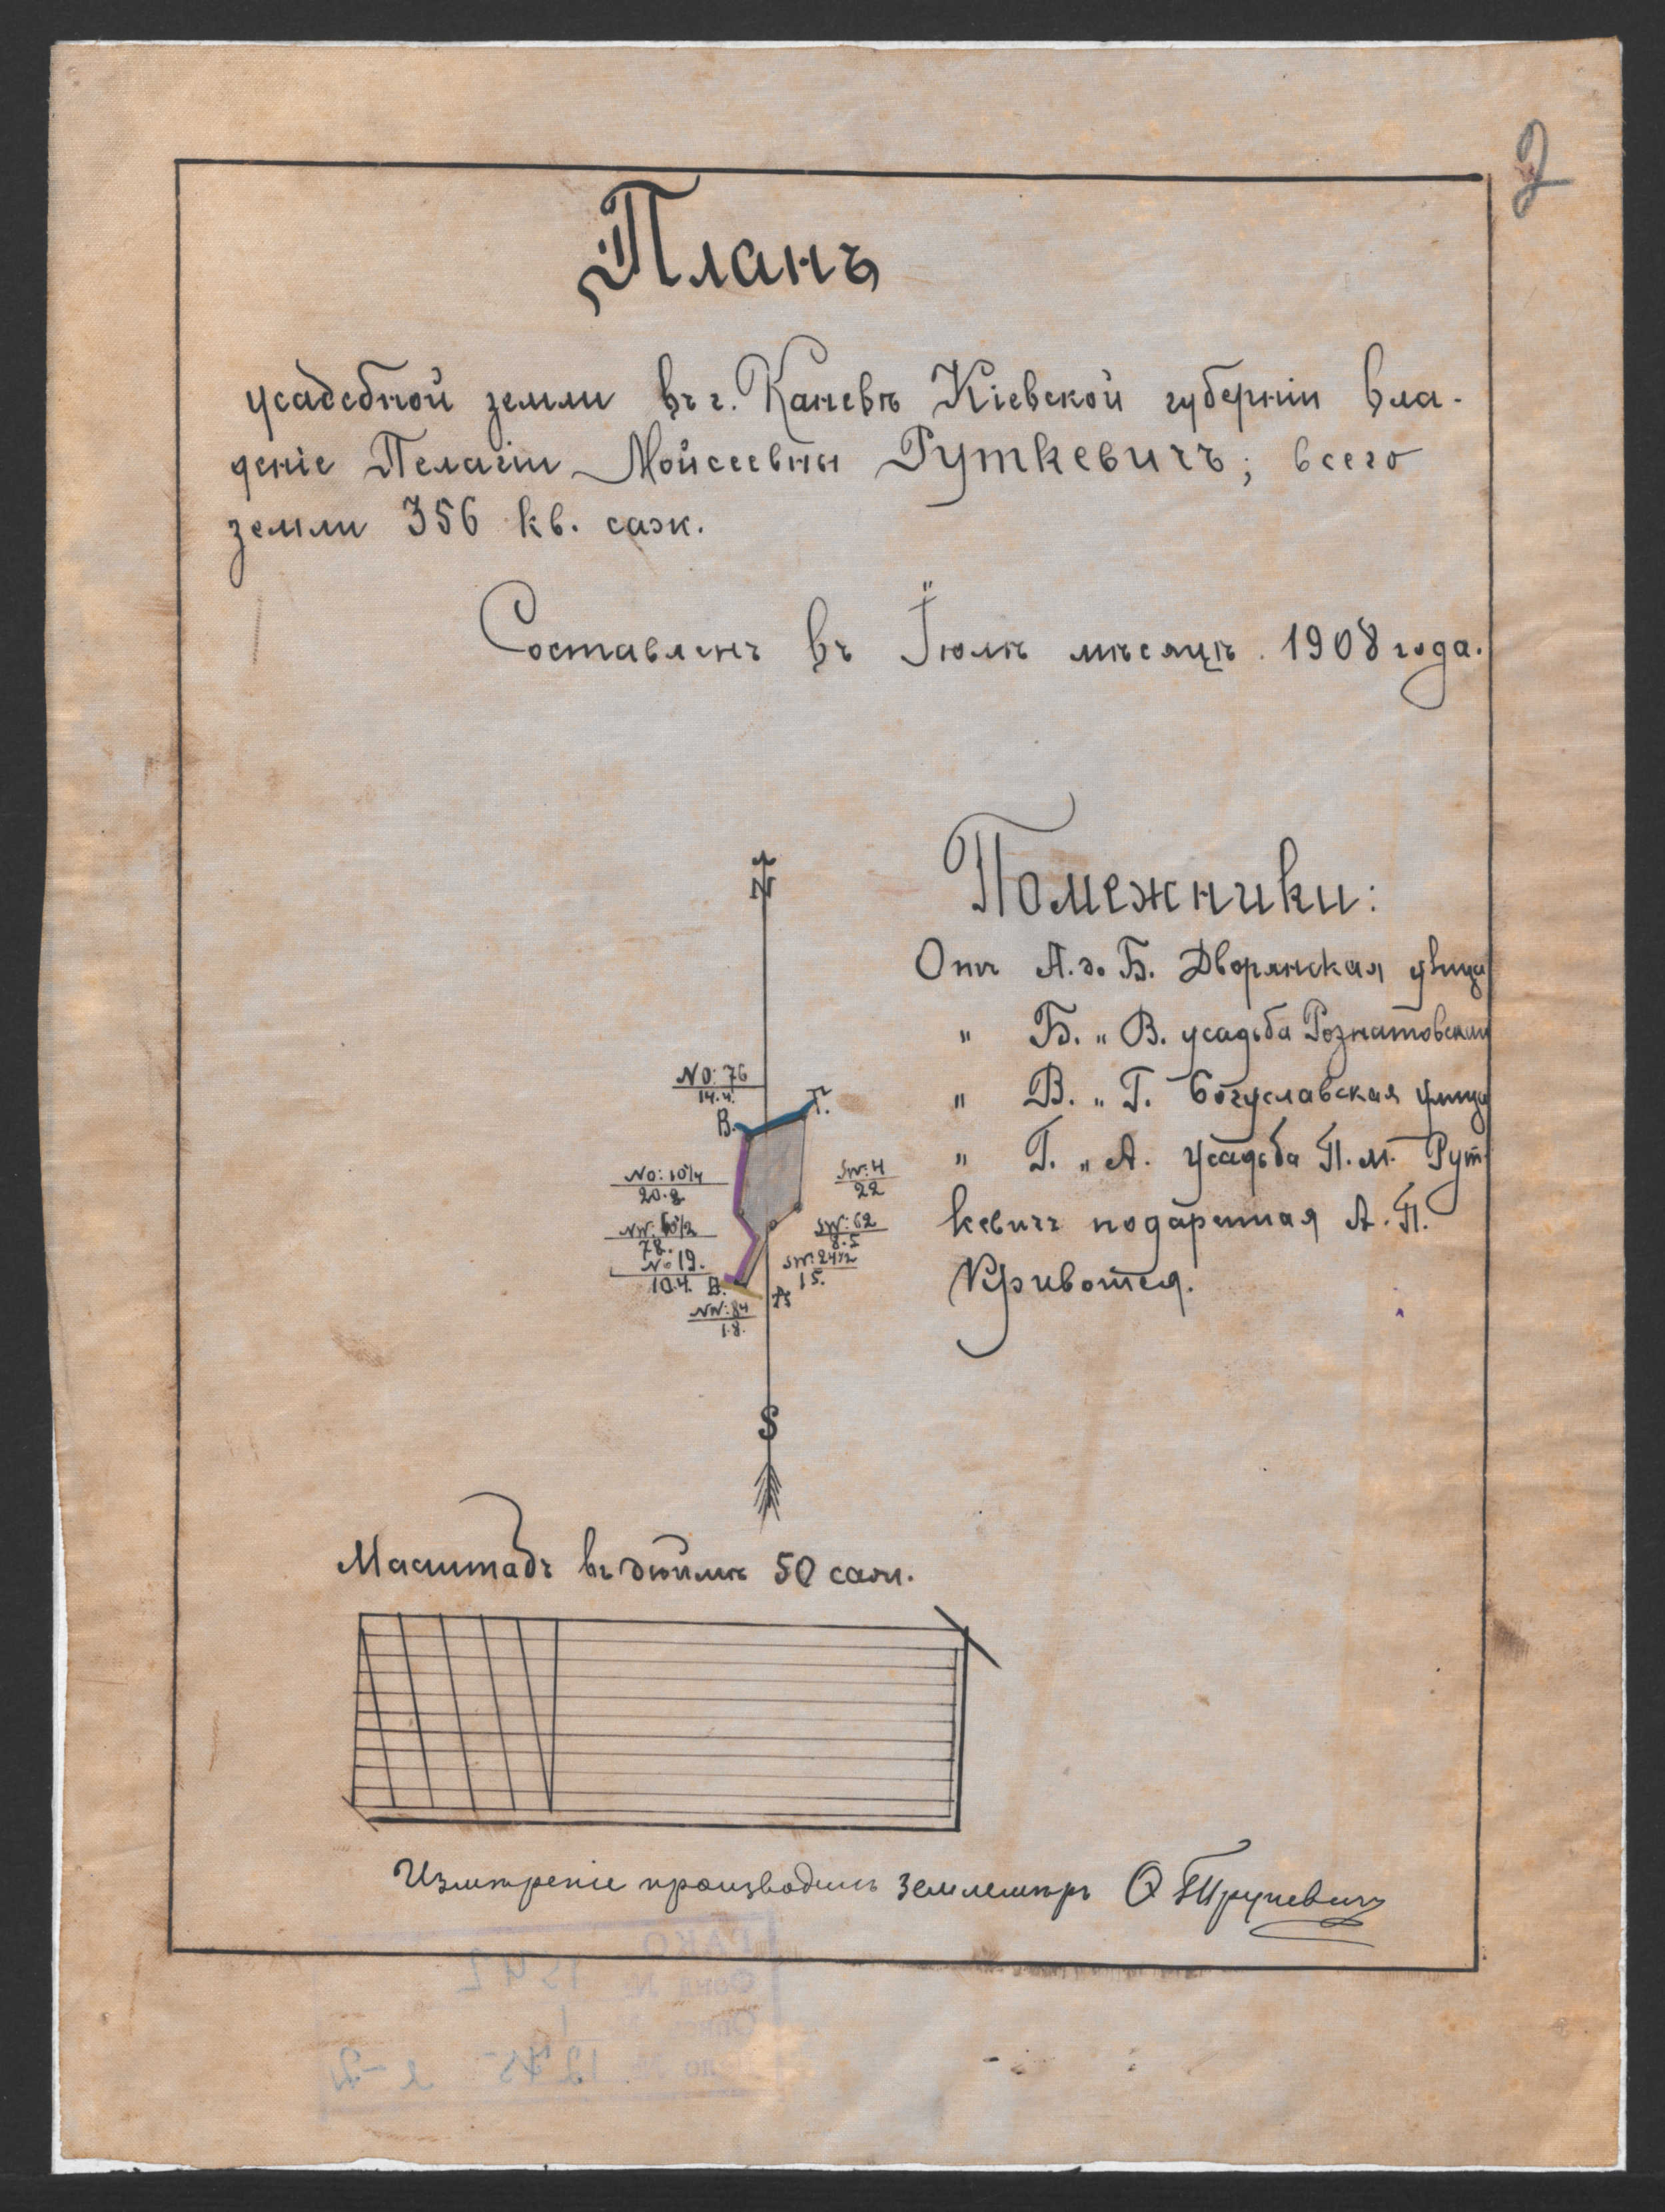 2
Планъ
усадебной земли въ г. Каневѣ Кіевской губерніи вла-
деніе Пелагіи Мойсеевны Руткевичъ; всего
земли 356 кв. саж.
Составленъ въ Іюлѣ мѣсяцѣ 1908 года.
N
Помежники:
Отъ А. до Б. Дворянская улица
" Б. " В. усадьба Рознатовской
" В. " Г. Богуславская улица
" Г. " А. Усадьба П. М. Рут-
кевичъ подаренная А. П.
NO: 76
14.4.
В. Г.
NO: 10¼
20.8
SW: 4
22
SW: 62
8.5
78.
No 19.
10.4.
SW: 24½
15.
А
NW: 84
1.8.
S
Масштабъ въ дюймѣ 50 саж.
Измѣреніе производилъ землемѣръ
ГАКО
Фонд № 1542
Опись № 1
Дело № 1275